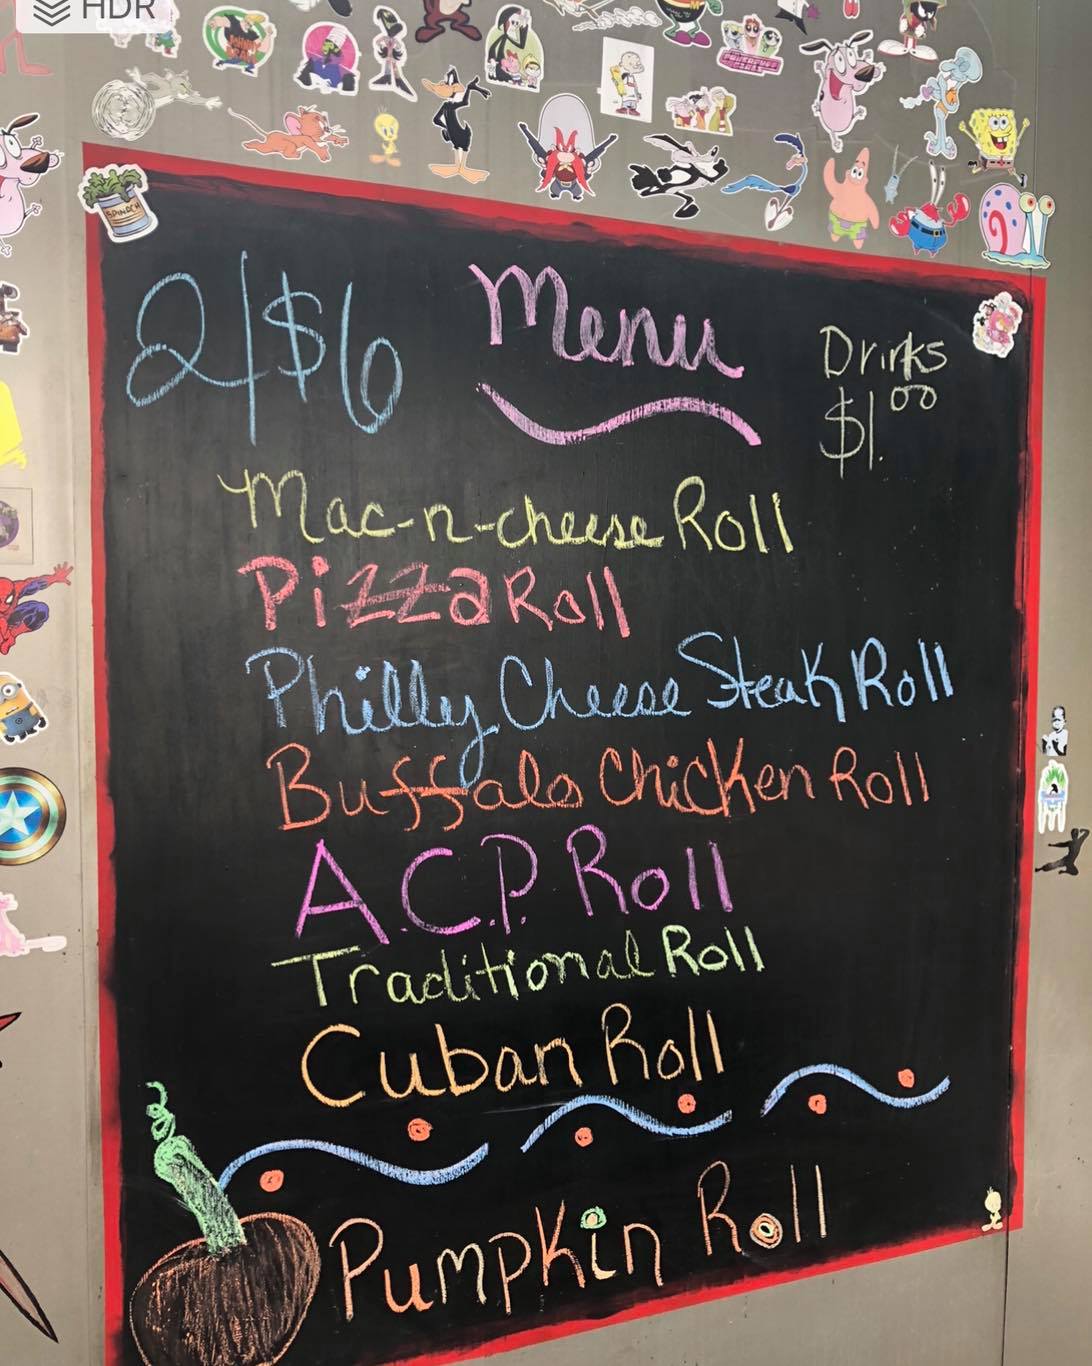 HDR
SPINACH
POWERPUFF GIRLS
2/$6
Menu
Drinks
$1.00
Mac-n-cheese Roll
Pizza Roll
Philly Cheese Steak Roll
Buffalo Chicken Roll
A.C.P. Roll
Traditional Roll
Cuban Roll
Pumpkin Roll